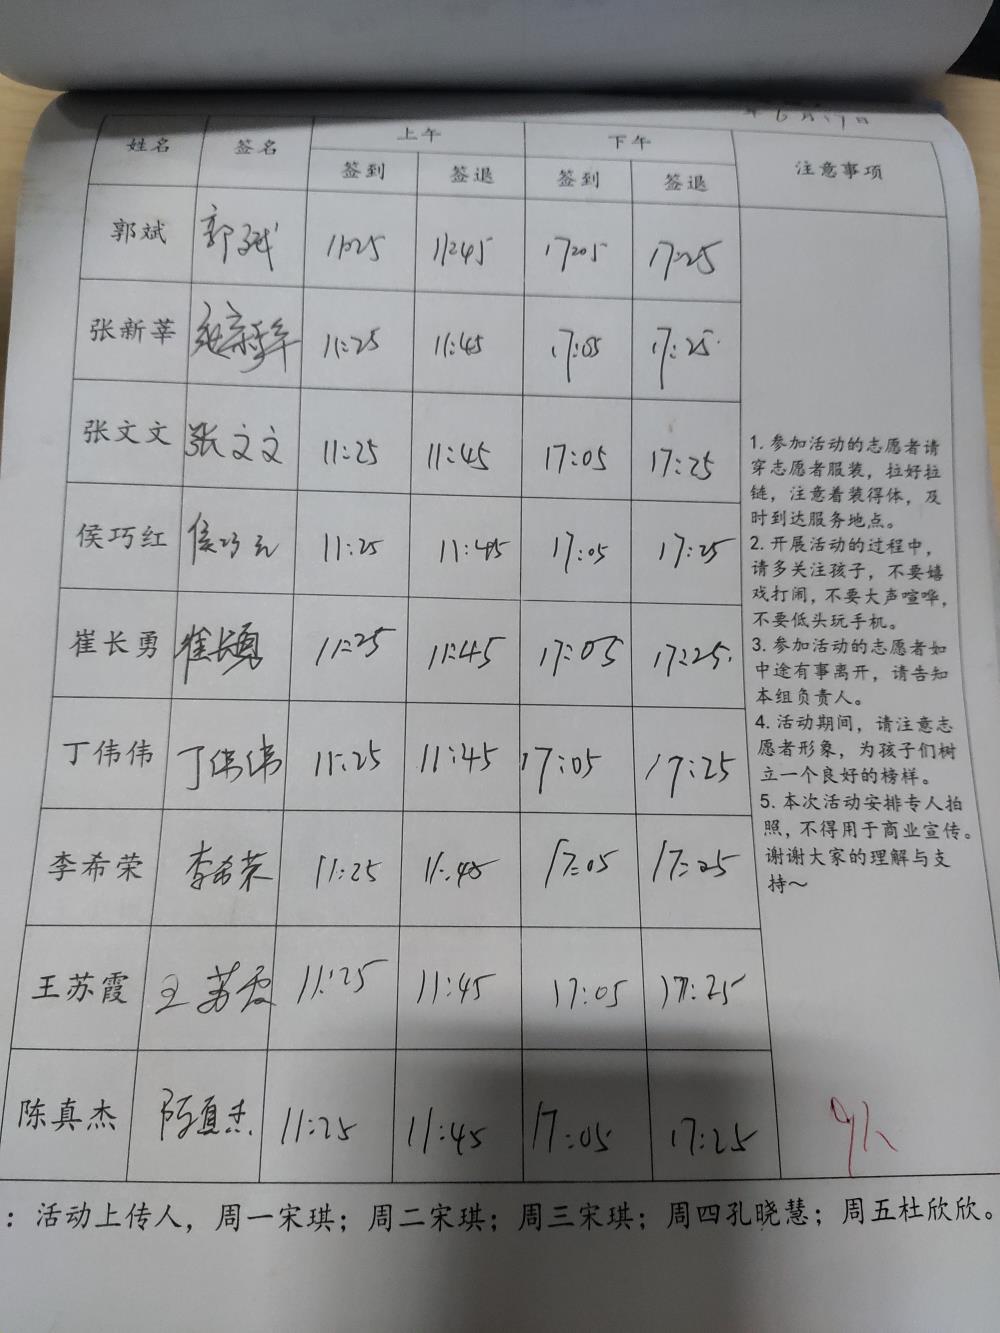 年6月17日
姓名 签名 上午 下午 注意事项
签到 签退 签到 签退
郭斌 郭斌 11:25 11:45 17:05 17:25
张新莘 张新莘 11:25 11:45 17:05 17:25
张文文 张文文 11:25 11:45 17:05 17:25
侯巧红 侯巧红 11:25 11:45 17:05 17:25
崔长勇 崔长勇 11:25 11:45 17:05 17:25
丁伟伟 丁伟伟 11:25 11:45 17:05 17:25
李希荣 李希荣 11:25 11:45 17:05 17:25
王苏霞 王苏霞 11:25 11:45 17:05 17:25
陈真杰 陈真杰 11:25 11:45 17:05 17:25
1. 参加活动的志愿者请
穿志愿者服装，拉好拉
链，注意着装得体，及
时到达服务地点。
2. 开展活动的过程中，
请多关注孩子，不要嬉
戏打闹，不要大声喧哗，
不要低头玩手机。
3. 参加活动的志愿者如
中途有事离开，请告知
本组负责人。
4. 活动期间，请注意志
愿者形象，为孩子们树
立一个良好的榜样。
5. 本次活动安排专人拍
照，不得用于商业宣传。
谢谢大家的理解与支
持～
9人
：活动上传人，周一宋琪；周二宋琪；周三宋琪；周四孔晓慧；周五杜欣欣。